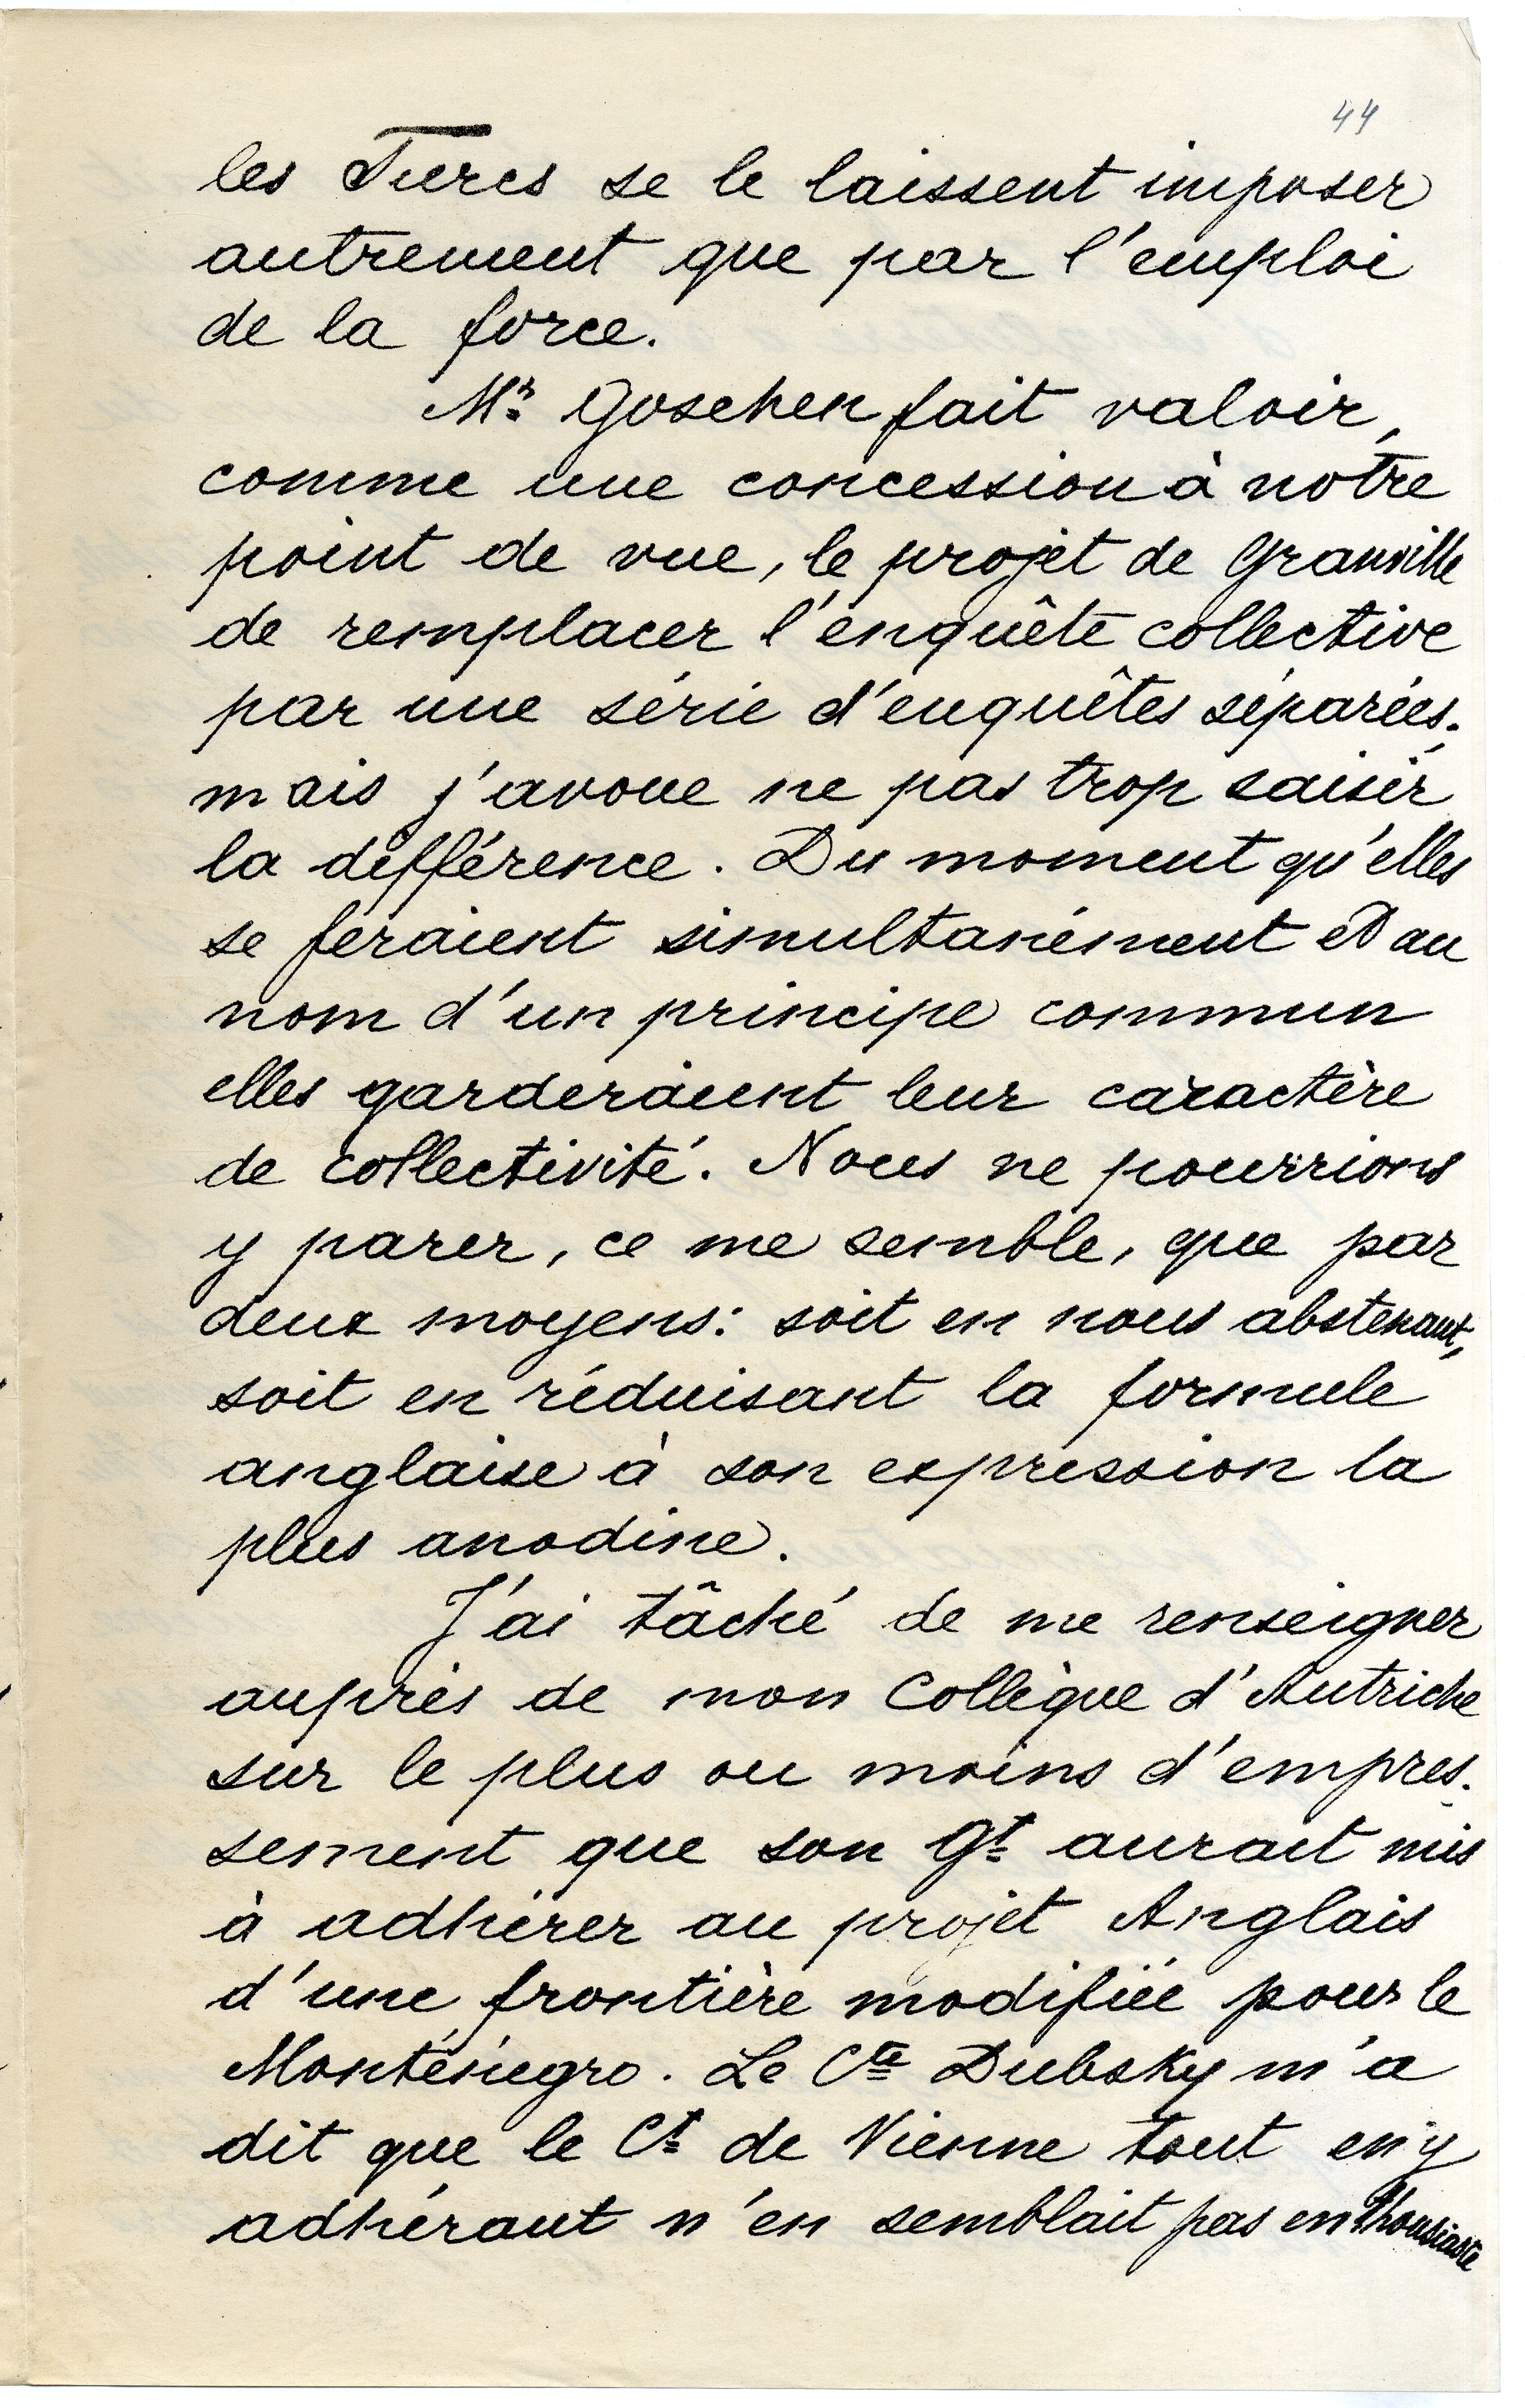 44
les Turcs se le laissent imposer
autrement que par l'emploi
de la force.
Mr Goschen fait valoir,
comme une concession à notre
point de vue, le projet de Granville
de remplacer l'enquête collective
par une série d'enquêtes séparées.
mais j'avoue ne pas trop saisir
la différence. Du moment qu'elles
se feraient simultanément et au
nom d'un principe commun
elles garderaient leur caractère
de collectivité. Nous ne pourrions
y parer, ce me semble, que par
deux moyens: soit en nous abstenant,
soit en réduisant la formule
anglaise à son expression la
plus anodine.
J'ai tâché de me renseigner
auprès de mon Collègue d'Autriche
sur le plus ou moins d'empres-
sement que son Gt aurait mis
à adhérer au projet Anglais
d'une frontière modifiée pour le
Monténégro. Le Cte Dubsky m'a
dit que le Ct de Vienne tout en y
adhérant n'en semblait pas enthousiaste